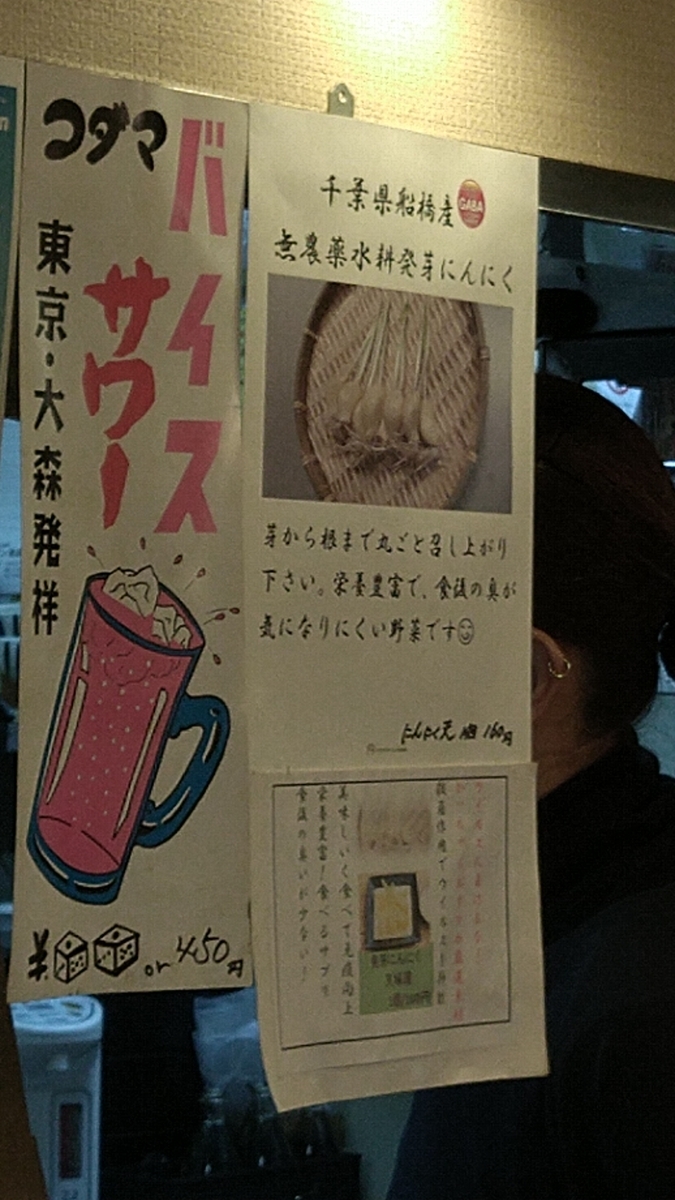 コダマ
バイス
サワー
東京・大森発祥
or 450円
千葉県船橋産
GABA
無農薬水耕発芽にんにく
芽から根まで丸ごと召し上がり
下さい。栄養豊富で、食後の臭が
気になりにくい野菜です
にんにく天 1個 160円
美味しいく食べて免疫向上
栄養豊富！食べるサプリ
食後の臭いが少ない！
発芽にんにく
天婦羅